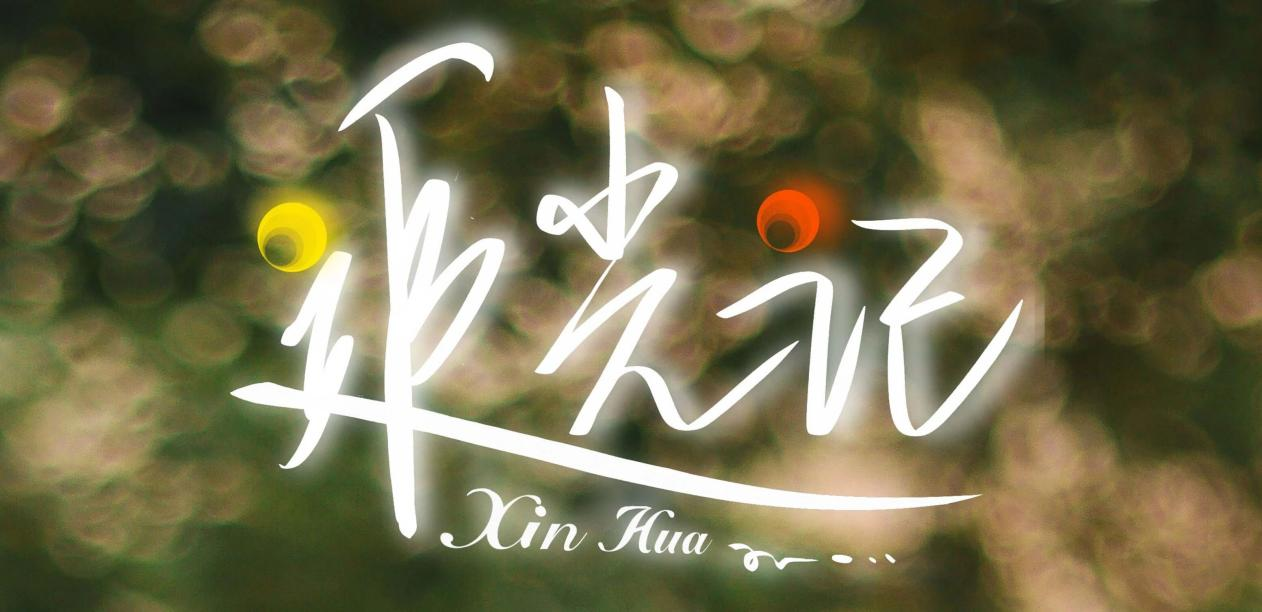 追光记
Xin Hua